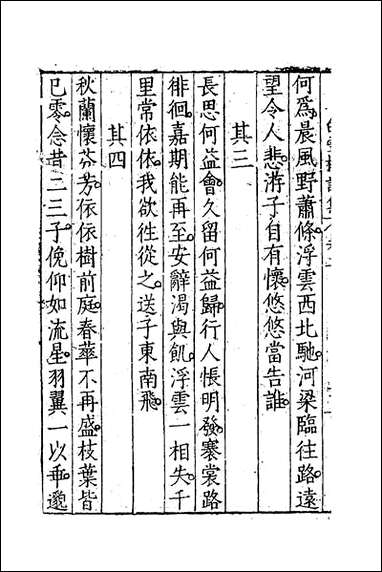 何爲晨風野蕭條浮雲西北馳河梁臨往路遠
望令人悲游子自有懷悠悠當告誰
其三
長思何益會久留何益歸行人悵明發褰裳路
徘徊嘉期能再至安辭渴與飢浮雲一相失千
里常依依我欲往從之送子東南飛
其四
秋蘭懷芬芳依依樹前庭春華不再盛枝葉皆
已零念昔二三子俛仰如流星羽翼一以乖邈